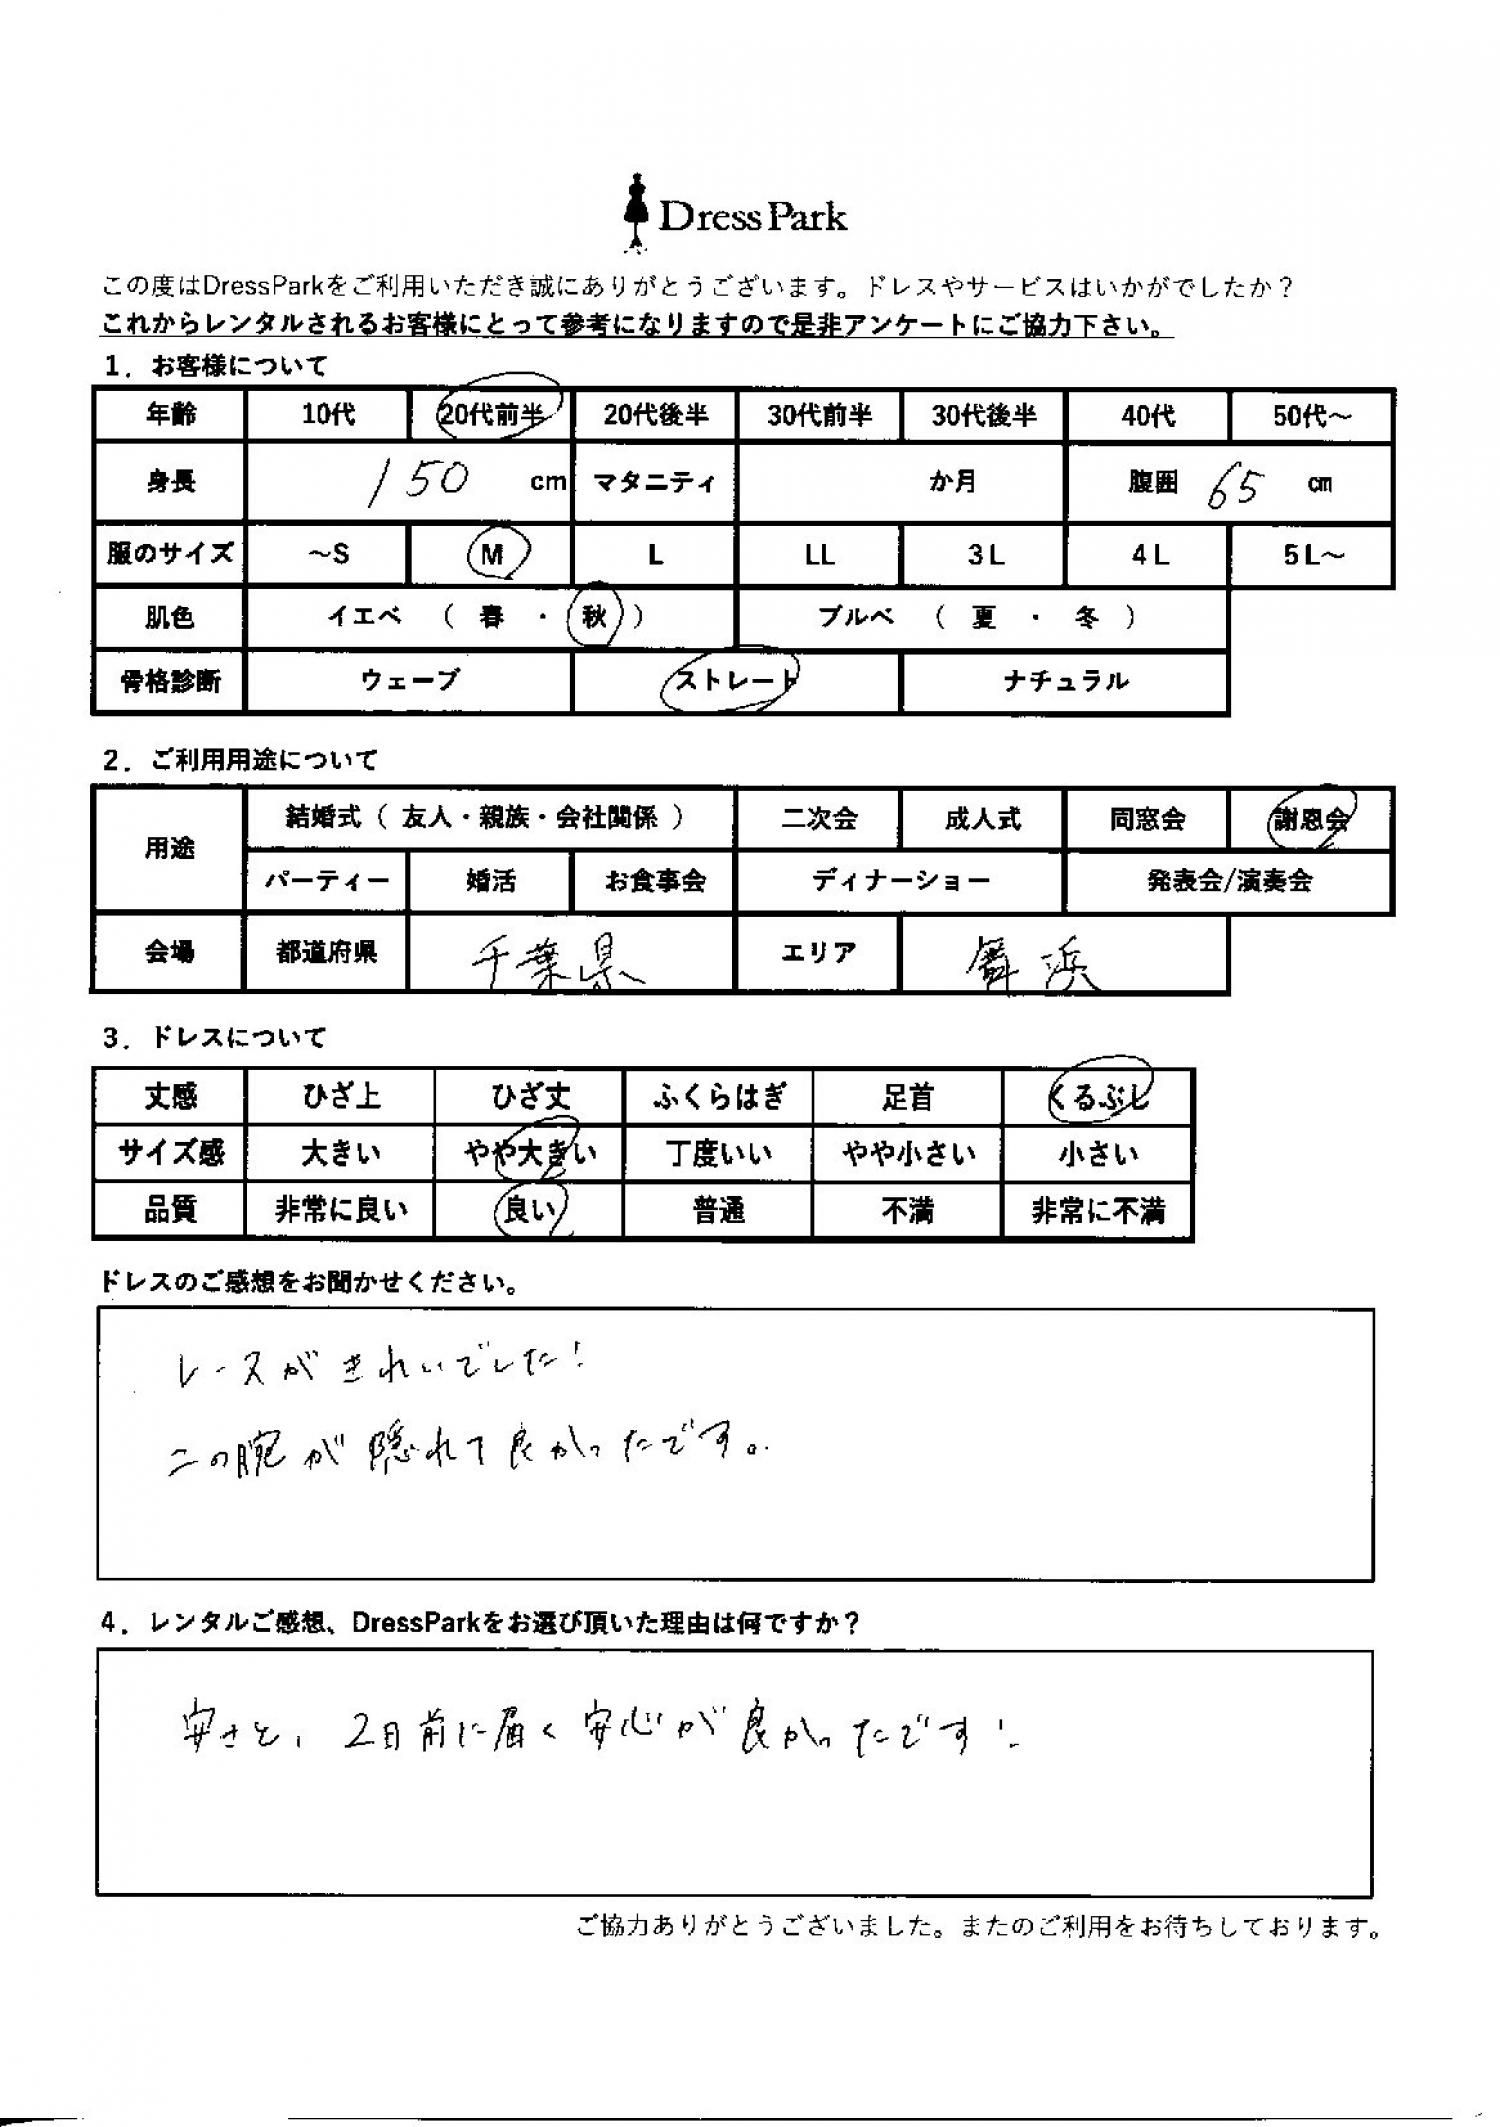 Dress Park
この度はDressParkをご利用いただき誠にありがとうございます。ドレスやサービスはいかがでしたか？
これからレンタルされるお客様にとって参考になりますので是非アンケートにご協力下さい。
1．お客様について
年齢 10代 20代前半 20代後半 30代前半 30代後半 40代 50代～
身長 150 cm マタニティ か月 腹囲 65 cm
服のサイズ ～S M L LL 3L 4L 5L～
肌色 イエベ （ 春 ・ 秋 ） ブルベ （ 夏 ・ 冬 ）
骨格診断 ウェーブ ストレート ナチュラル
2．ご利用用途について
用途 結婚式（ 友人・親族・会社関係 ） 二次会 成人式 同窓会 謝恩会
パーティー 婚活 お食事会 ディナーショー 発表会/演奏会
会場 都道府県 千葉県 エリア 舞浜
3．ドレスについて
丈感 ひざ上 ひざ丈 ふくらはぎ 足首 くるぶし
サイズ感 大きい やや大きい 丁度いい やや小さい 小さい
品質 非常に良い 良い 普通 不満 非常に不満
ドレスのご感想をお聞かせください。
レースがきれいでした！
二の腕が隠れて良かったです。
4．レンタルご感想、DressParkをお選び頂いた理由は何ですか？
安さと、2日前に届く安心が良かったです！
ご協力ありがとうございました。またのご利用をお待ちしております。